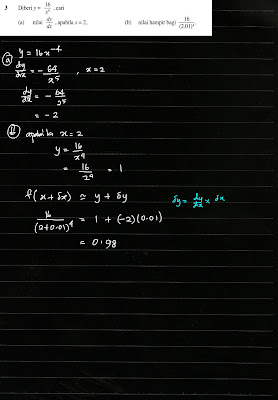 3 Diberi y = 16/x⁴, cari
(a) nilai dy/dx, apabila x = 2, (b) nilai hampir bagi 16/(2.01)⁴.
(a) y = 16x⁻⁴
dy/dx = - 64/x⁵ , x=2
dy/dx = - 64/2⁵
= -2
(b) apabila x = 2
y = 16/x⁴
= 16/2⁴ = 1
f(x+δx) ≈ y + δy δy = dy/dx × δx
16/(2+0.01)⁴ = 1 + (-2)(0.01)
= 0.98